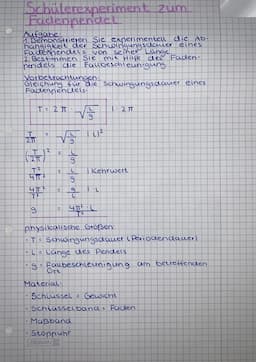 Schülerexperiment zum
Fadenpendel
Aufgabe:
1. Demonstrieren Sie experimentell die Ab-
hängigkeit der Schwingungsdauer eines
Fadenpendels von seiner Länge
2. Bestimmen Sie mit Hilfe des Faden-
pendels die Fallbeschleunigung.
Vorbetrachtungen:
Gleichung für die Schwingungsdauer eines
Fadenpendels:
T = 2π √(L/g) | : 2π
T/2π = √(L/g) | ( )²
(T/2π)² = L/g
T²/4π² = L/g | Kehrwert
4π²/T² = g/L | · L
g = 4π² · L/T²
physikalische Größen:
- T = Schwingungsdauer (Periodendauer)
- L = Länge des Pendels
- g = Fallbeschleunigung am betreffenden
Ort
Material:
- Schlüssel = Gewicht
- Schlüsselband = Faden
- Maßband
- Stoppuhr